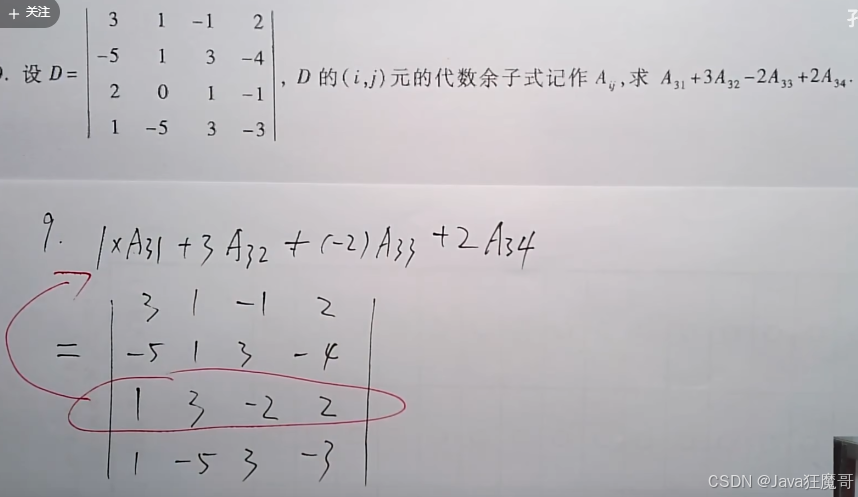 + 关注
9. 设 D= | 3 1 -1 2 |
| -5 1 3 -4 |
| 2 0 1 -1 |
| 1 -5 3 -3 |
, D 的(i,j)元的代数余子式记作 A_ij,求 A_31+3A_32-2A_33+2A_34.
9. 1×A_31 + 3A_32 + (-2)A_33 + 2A_34
= | 3 1 -1 2 |
| -5 1 3 -4 |
| 1 3 -2 2 |
| 1 -5 3 -3 |
CSDN @Java狂魔哥